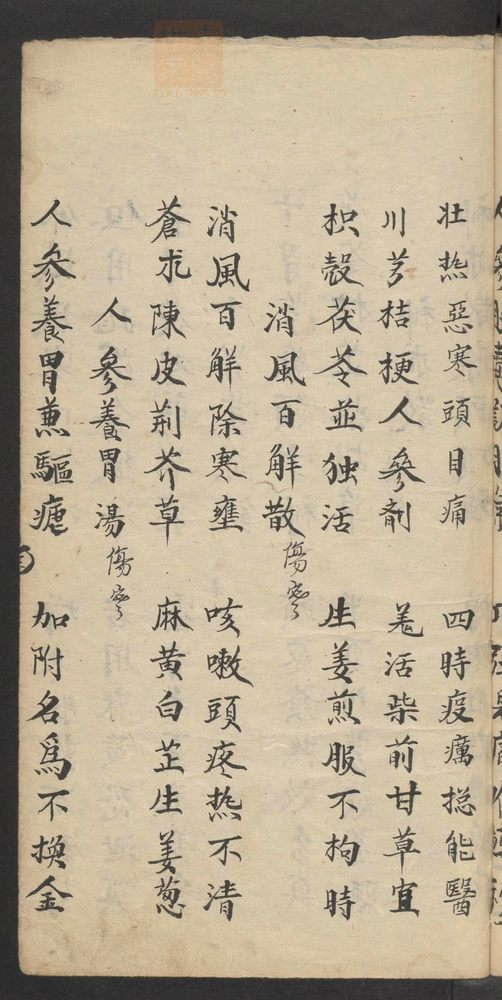 壮热惡寒頭目痛 四時疫癘捴能醫
川芎桔梗人參劑 羗活柴前甘草宜
枳殼茯苓並独活 生姜煎服不拘時
消風百解散 傷寒
消風百解除寒壅 咳嗽頭疼热不清
蒼朮陳皮荊芥草 麻黄白芷生姜葱
人參養胃湯 傷寒
人參養胃兼驅瘧 加附名爲不換金